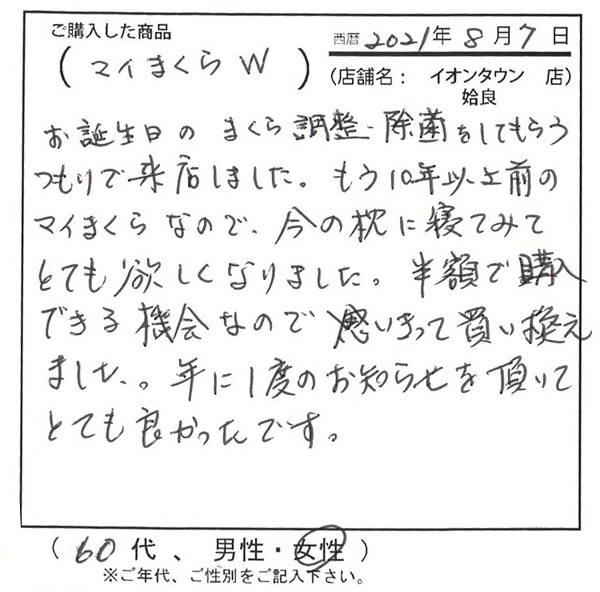 ご購入した商品
西暦 2021年 8月 7日
( マイまくら W )
(店舗名： イオンタウン姶良 店)
お誕生日の まくら調整・除菌をしてもらう
つもりで来店しました。もう10年以上前の
マイまくらなので、今の枕に寝てみて
とても欲しくなりました。半額で購入
できる機会なので思いきって買い換え
ました。年に1度のお知らせを頂いて
とても良かったです。
( 60 代 、 男性・女性 )
※ご年代、ご性別をご記入下さい。